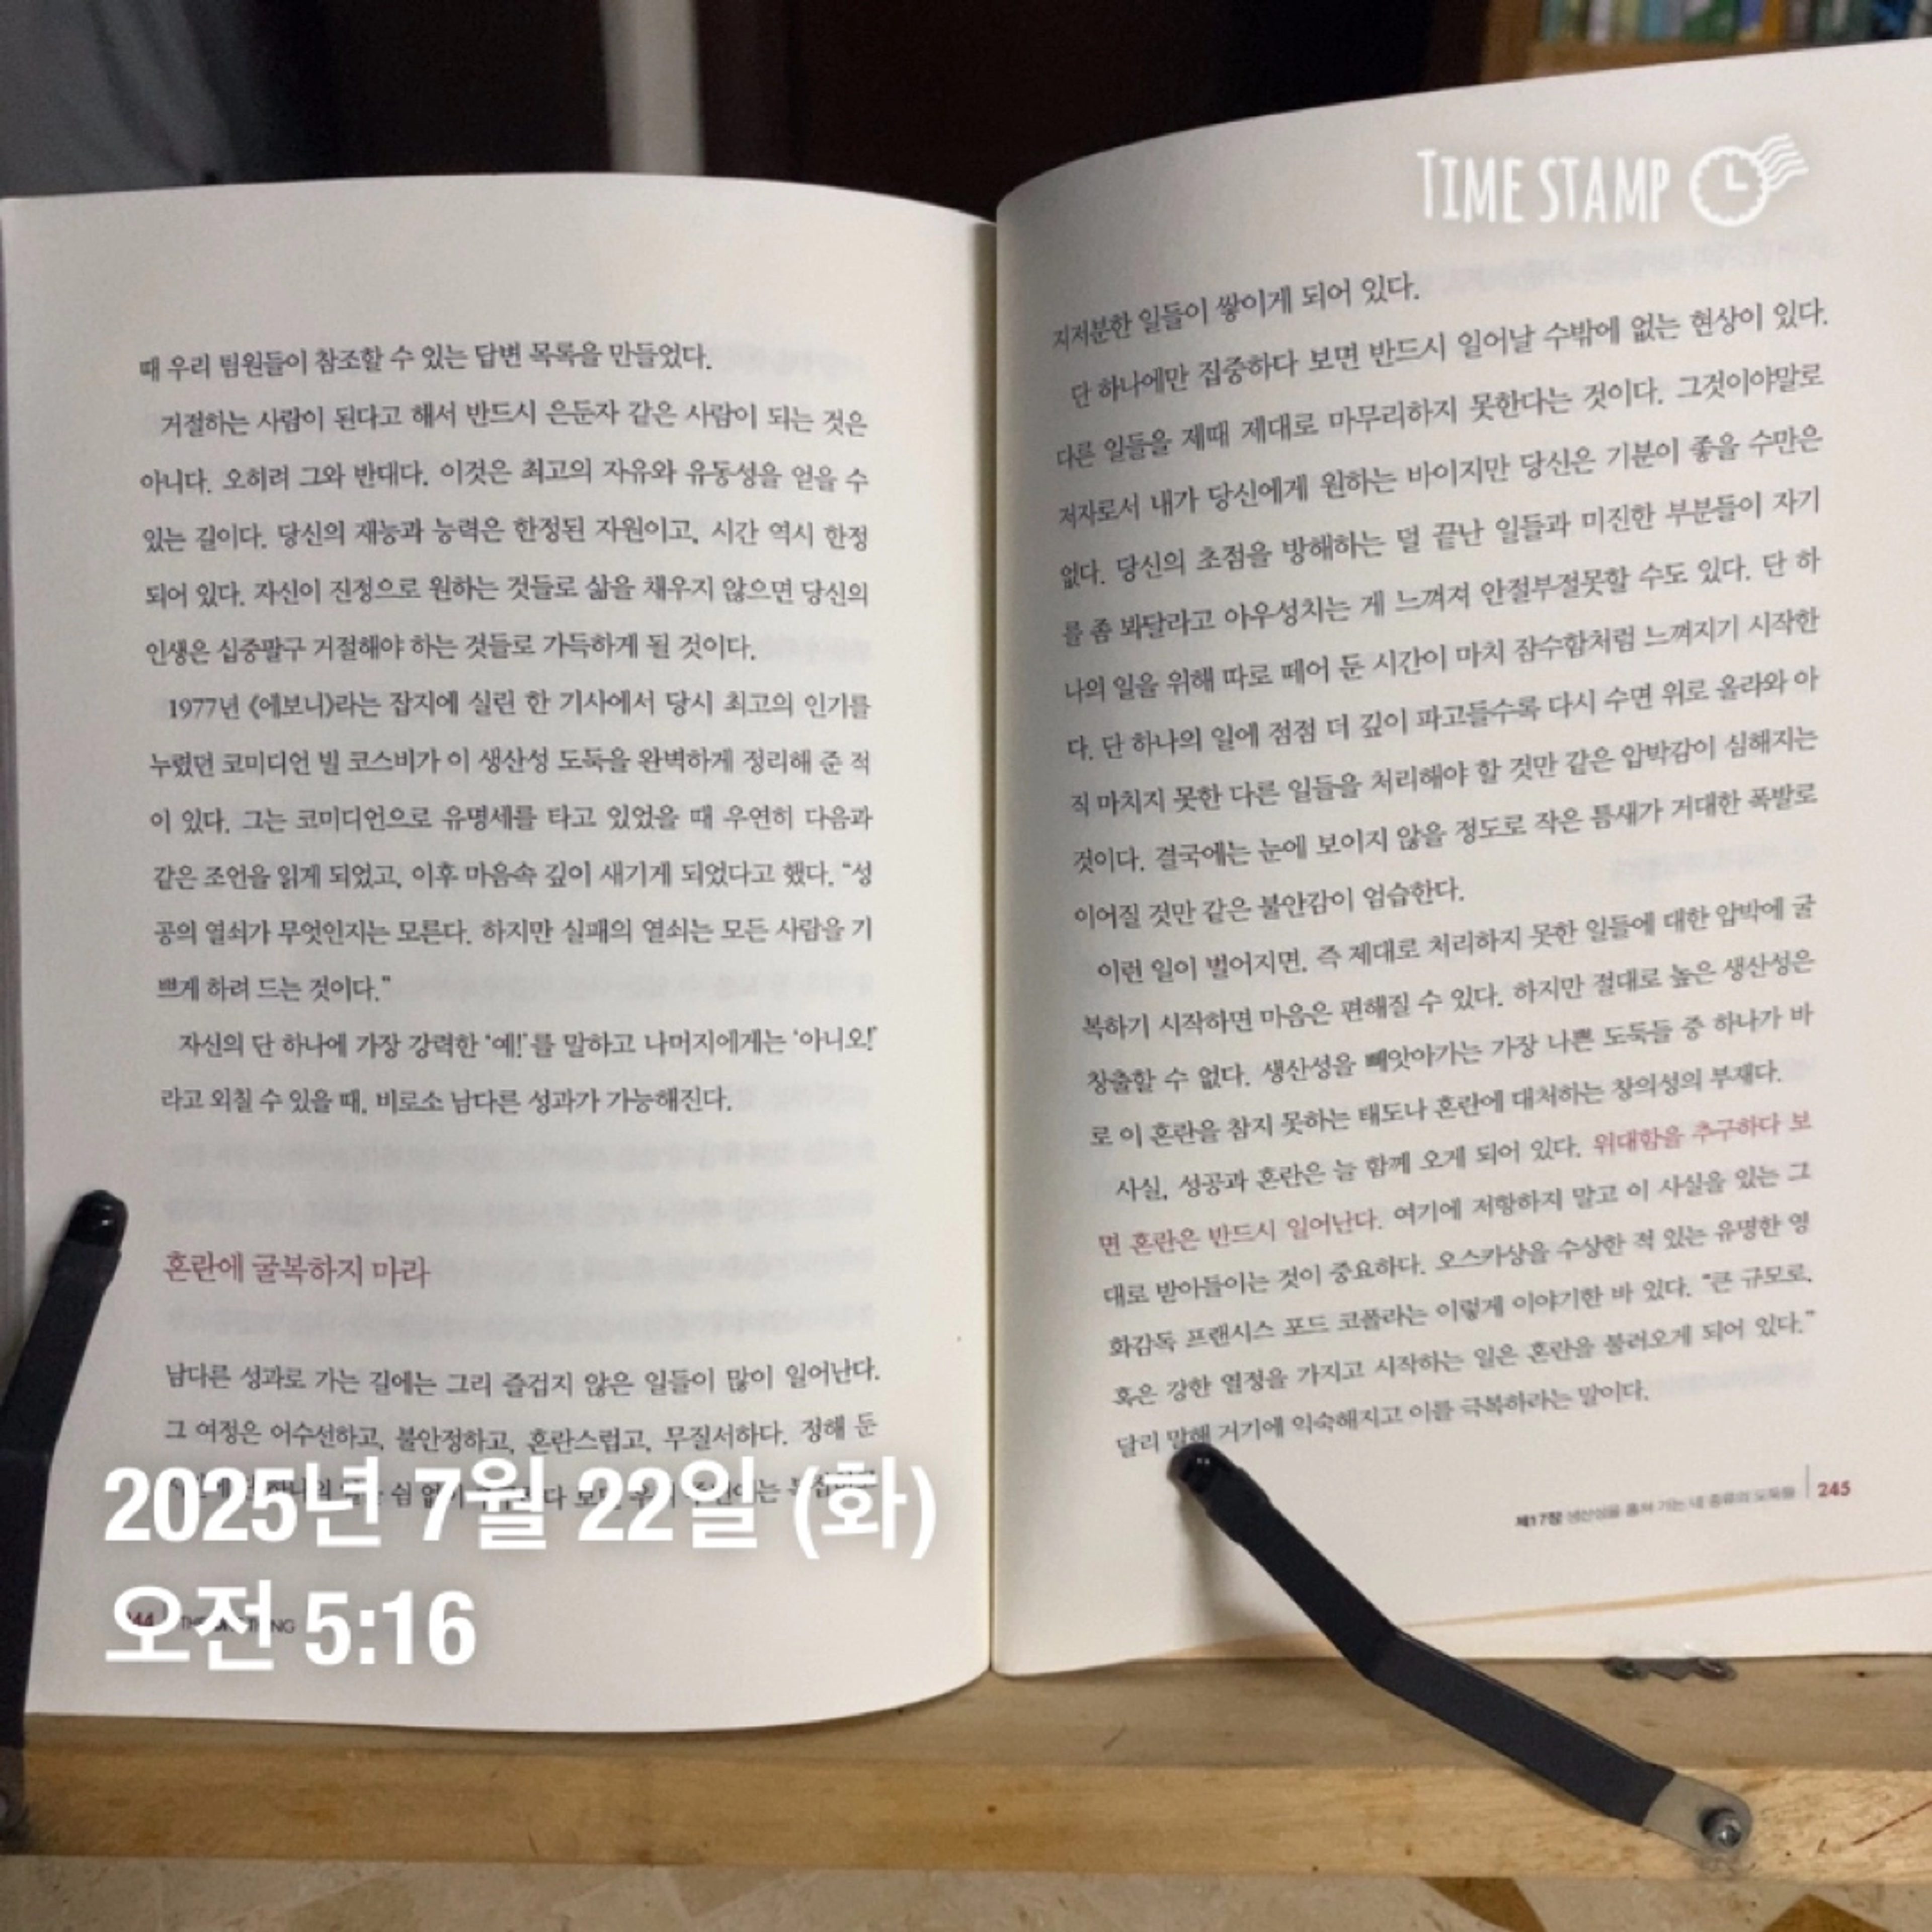 때 우리 팀원들이 참조할 수 있는 답변 목록을 만들었다.
거절하는 사람이 된다고 해서 반드시 은둔자 같은 사람이 되는 것은
아니다. 오히려 그와 반대다. 이것은 최고의 자유와 유동성을 얻을 수
있는 길이다. 당신의 재능과 능력은 한정된 자원이고, 시간 역시 한정
되어 있다. 자신이 진정으로 원하는 것들로 삶을 채우지 않으면 당신의
인생은 십중팔구 거절해야 하는 것들로 가득하게 될 것이다.
1977년 《에보니》라는 잡지에 실린 한 기사에서 당시 최고의 인기를
누렸던 코미디언 빌 코스비가 이 생산성 도둑을 완벽하게 정리해 준 적
이 있다. 그는 코미디언으로 유명세를 타고 있었을 때 우연히 다음과
같은 조언을 읽게 되었고, 이후 마음속 깊이 새기게 되었다고 했다. “성
공의 열쇠가 무엇인지는 모른다. 하지만 실패의 열쇠는 모든 사람을 기
쁘게 하려 드는 것이다.”
자신의 단 하나에 가장 강력한 ‘예!’를 말하고 나머지에게는 ‘아니오!’
라고 외칠 수 있을 때, 비로소 남다른 성과가 가능해진다.
혼란에 굴복하지 마라
남다른 성과로 가는 길에는 그리 즐겁지 않은 일들이 많이 일어난다.
그 여정은 어수선하고, 불안정하고, 혼란스럽고, 무질서하다. 정해 둔
쉼 보면
2025년 7월 22일 (화)
오전 5:16
244 THE ONE THING
TIME STAMP
지저분한 일들이 쌓이게 되어 있다.
단 하나에만 집중하다 보면 반드시 일어날 수밖에 없는 현상이 있다.
다른 일들을 제때 제대로 마무리하지 못한다는 것이다. 그것이야말로
저자로서 내가 당신에게 원하는 바이지만 당신은 기분이 좋을 수만은
없다. 당신의 초점을 방해하는 덜 끝난 일들과 미진한 부분들이 자기
를 좀 봐달라고 아우성치는 게 느껴져 안절부절못할 수도 있다. 단 하
나의 일을 위해 따로 떼어 둔 시간이 마치 잠수함처럼 느껴지기 시작한
다. 단 하나의 일에 점점 더 깊이 파고들수록 다시 수면 위로 올라와 아
직 마치지 못한 다른 일들을 처리해야 할 것만 같은 압박감이 심해지는
것이다. 결국에는 눈에 보이지 않을 정도로 작은 틈새가 거대한 폭발로
이어질 것만 같은 불안감이 엄습한다.
이런 일이 벌어지면, 즉 제대로 처리하지 못한 일들에 대한 압박에 굴
복하기 시작하면 마음은 편해질 수 있다. 하지만 절대로 높은 생산성은
창출할 수 없다. 생산성을 빼앗아가는 가장 나쁜 도둑들 중 하나가 바
로 이 혼란을 참지 못하는 태도나 혼란에 대처하는 창의성의 부재다.
사실, 성공과 혼란은 늘 함께 오게 되어 있다. 위대함을 추구하다 보
면 혼란은 반드시 일어난다. 여기에 저항하지 말고 이 사실을 있는 그
대로 받아들이는 것이 중요하다. 오스카상을 수상한 적 있는 유명한 영
화감독 프랜시스 포드 코폴라는 이렇게 이야기한 바 있다. “큰 규모로,
혹은 강한 열정을 가지고 시작하는 일은 혼란을 불러오게 되어 있다.”
달리 말해 거기에 익숙해지고 이를 극복하라는 말이다.
제17장 생산성을 훔쳐 가는 네 종류의 도둑들 245